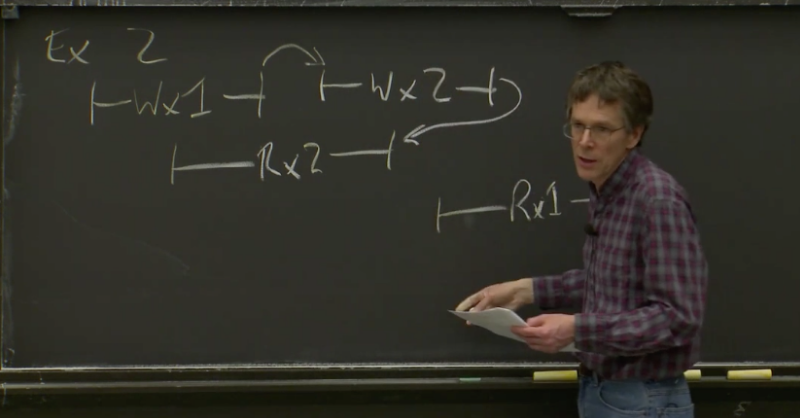 Ex 2
Wx1 Wx2
Rx2
Rx1